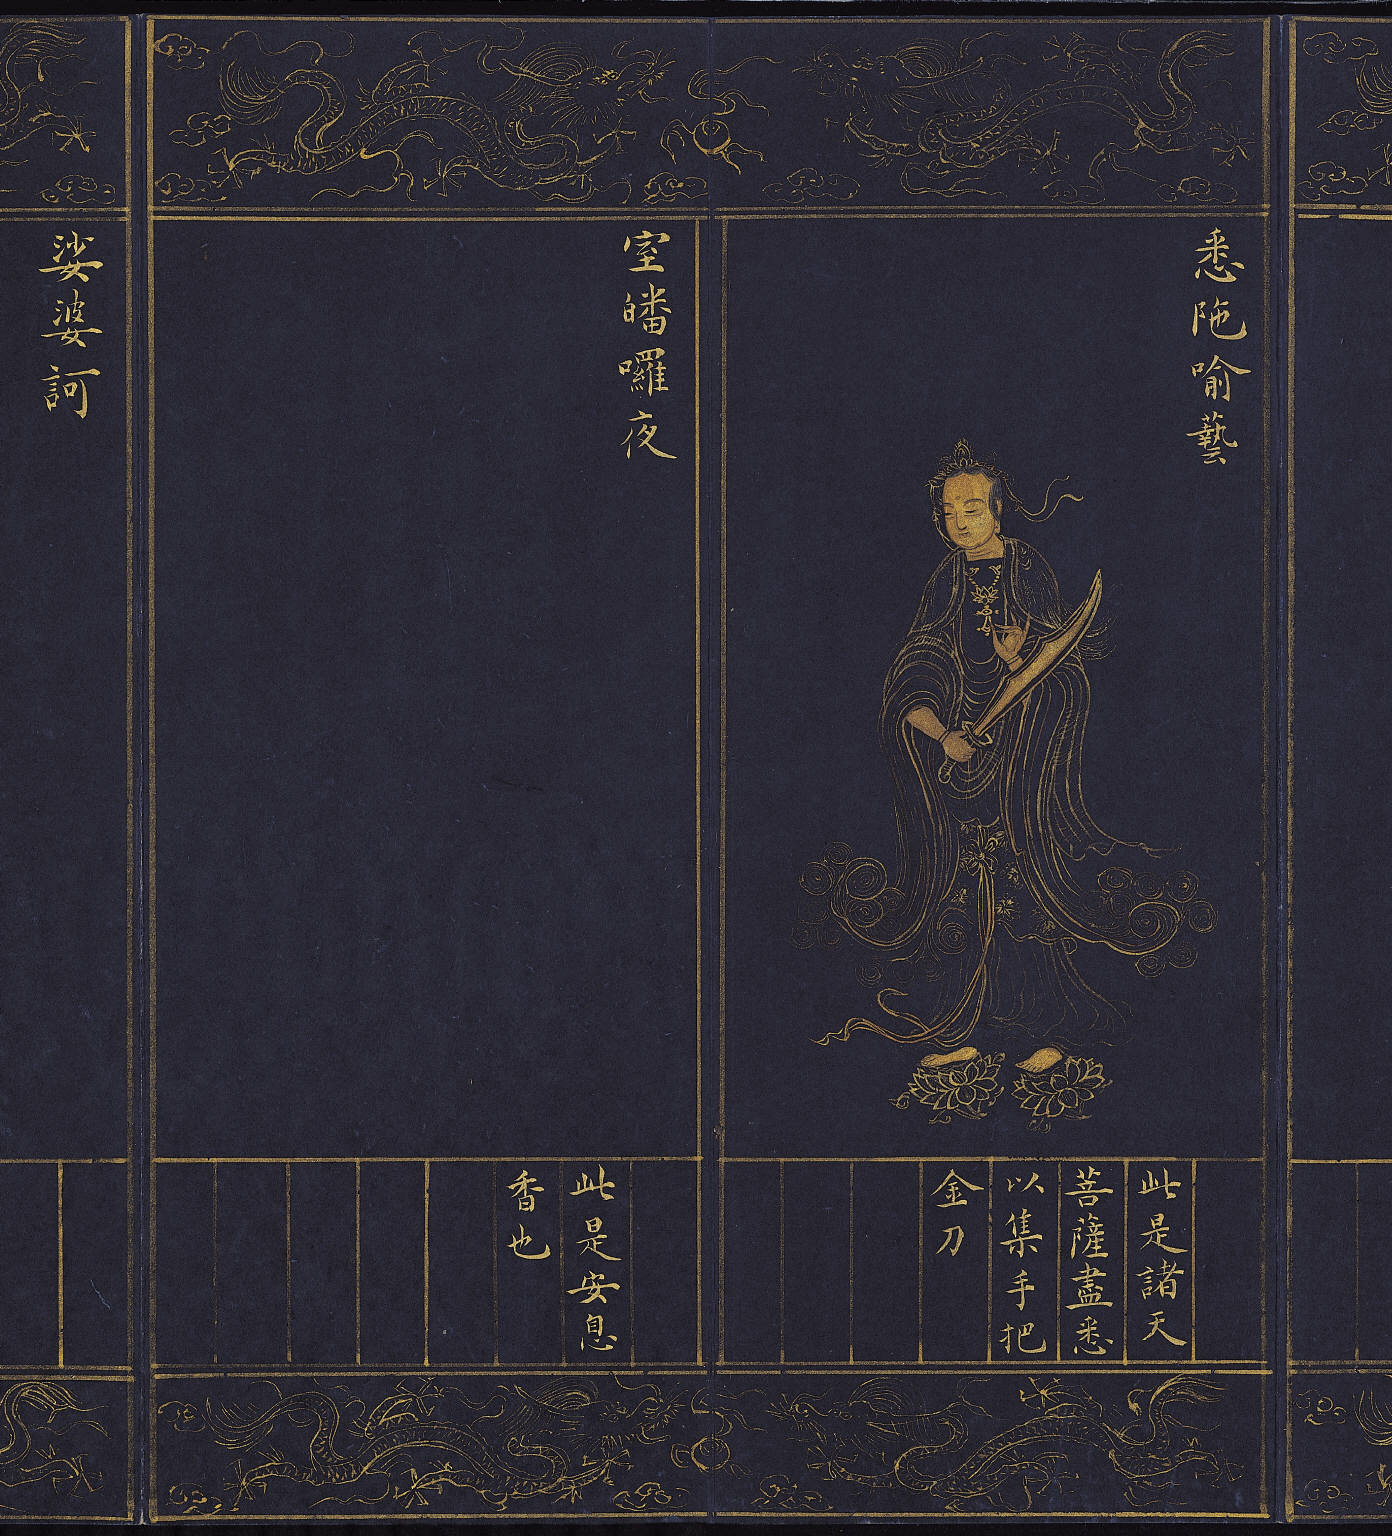 悉陁喻藝
此是諸天
菩薩盡悉
以集手把
金刀
室皤囉夜
此是安息
香也
娑婆訶